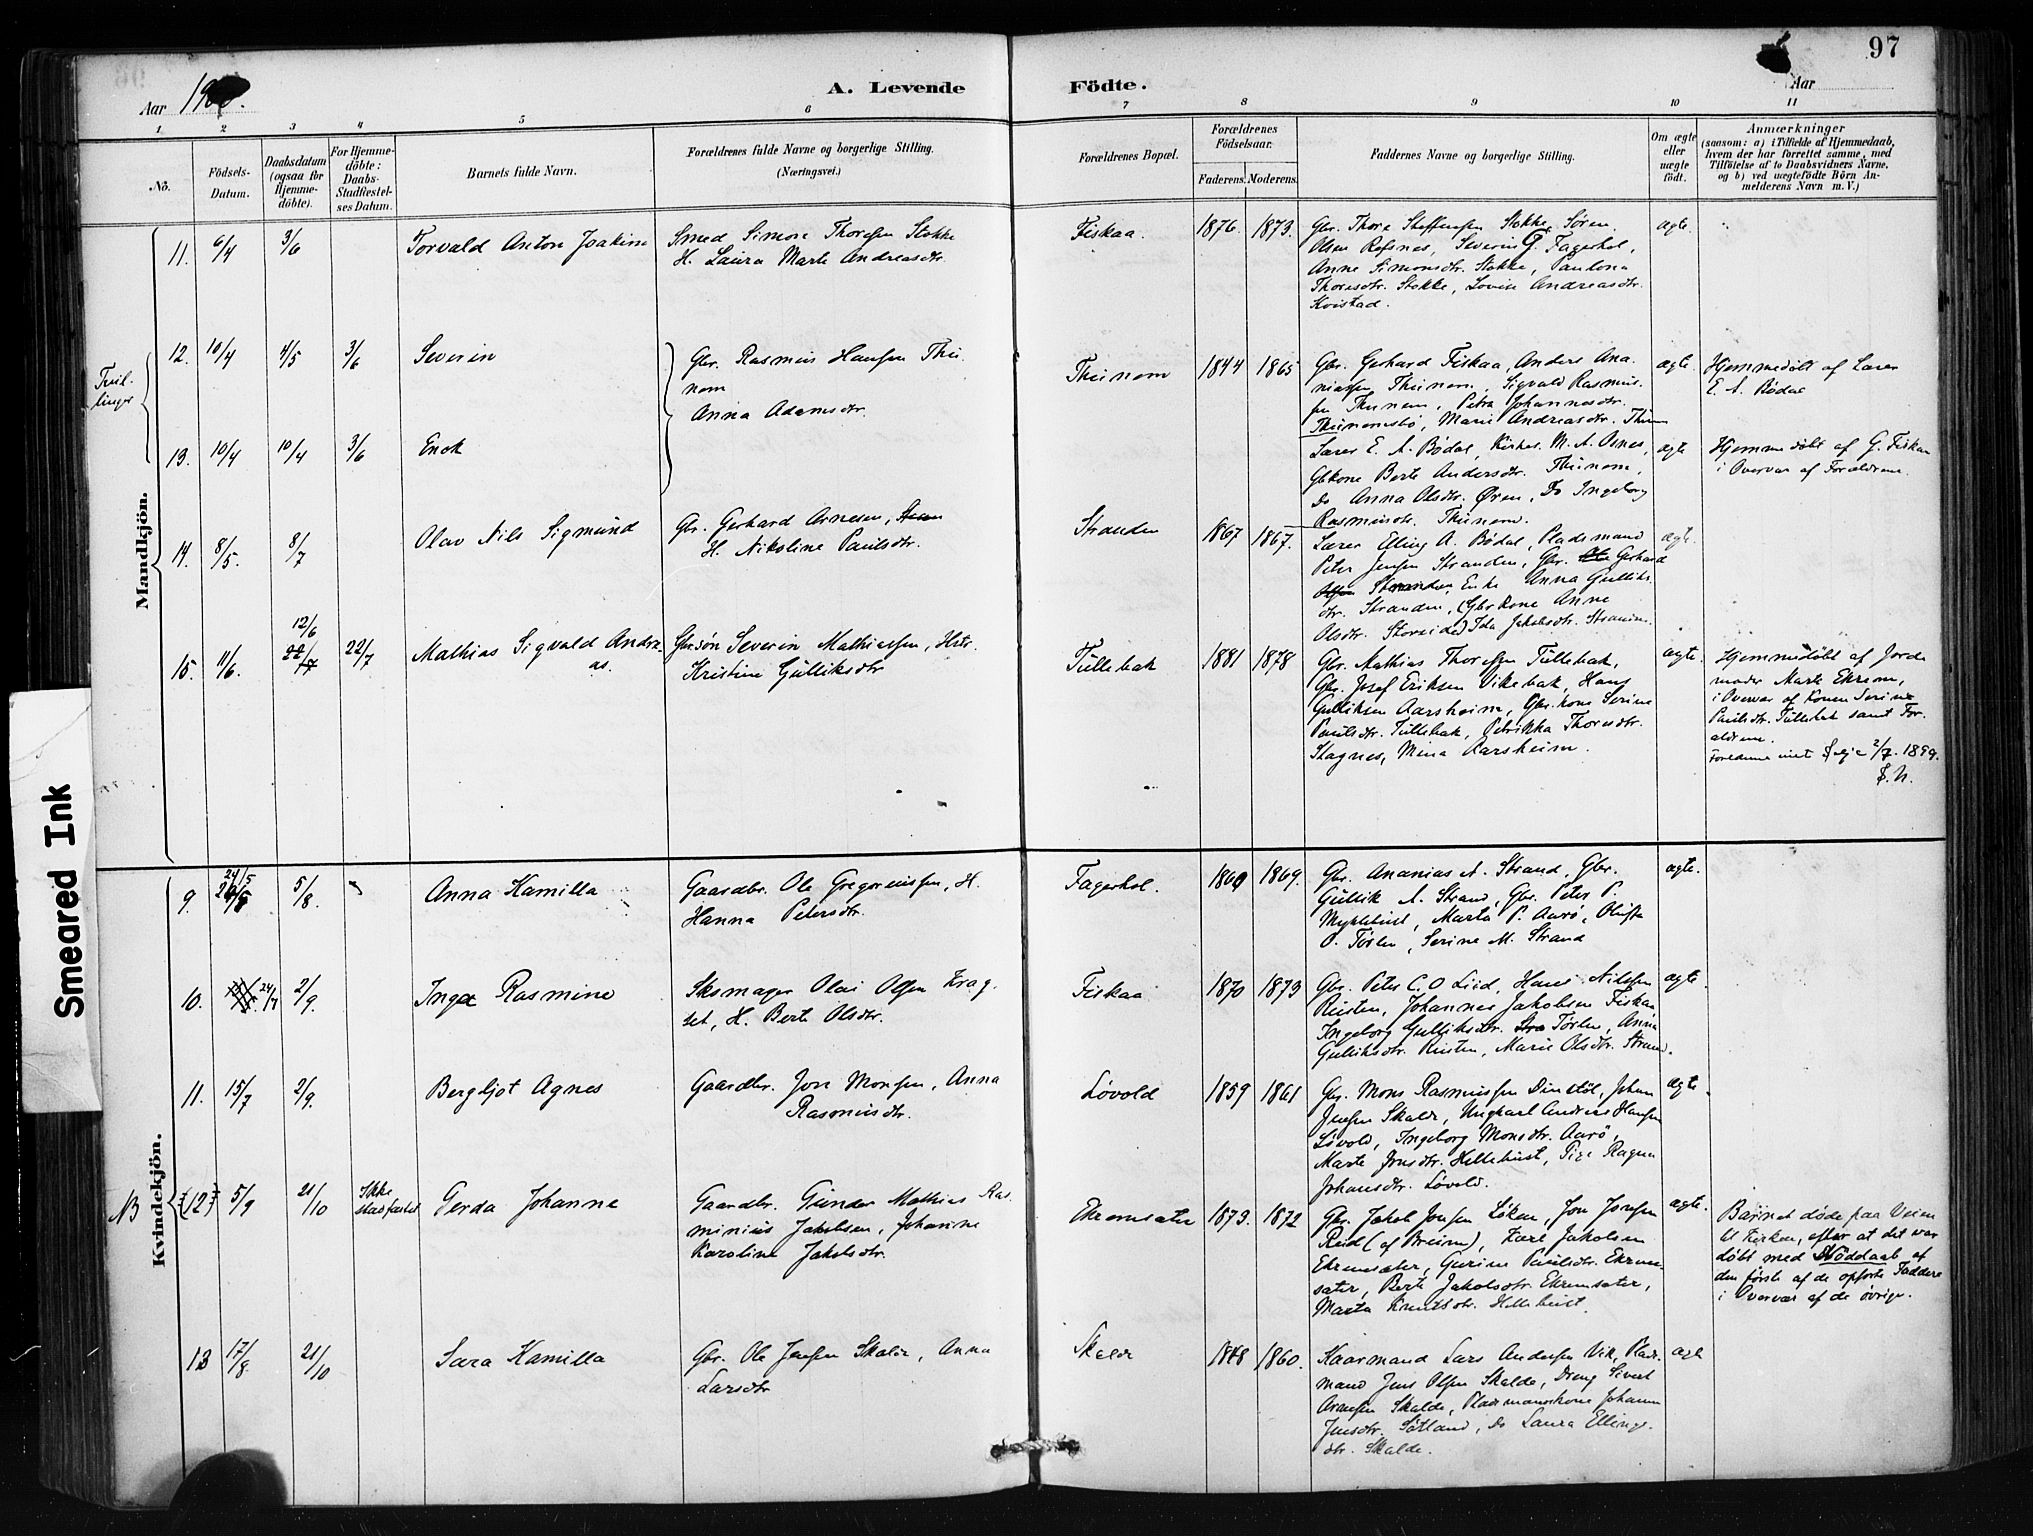 97
Aar
A. Levende Födte.
Aar
1. 2 3 4 5 6 7 8 9 10 11
No.
Födsels-
Datum.
Daabsdatum
(ogsaa for
Hjemme-
döbte).
For Hjemme-
döbte:
Daabs-
Stadfæstel-
ses Datum.
Barnets fulde Navn.
Forældrenes fulde Navne og borgerlige Stilling.
(Næringsvei.)
Forældrenes Bopæl.
Forældrenes
Födselsaar.
Faderens. Moderens.
Faddernes Navne og borgerlige Stilling.
Om ægte
eller
uægte
födt.
Anmærkninger
(saasom: a) i Tilfælde af Hjemmedaab,
hvem der har forrettet samme, med
Tilföielse af to Daabsvidners Navne,
og b) ved uægtefödte Börn An-
melderens Navn m. V.)
Mandkjön.
11. 6/4 3/6 Torvald Anton Joakim
Smed Simon Thoresen Stokke
H. Laura Marte Andreasdtr.
Fiskaa. 1876. 1873.
Gbr. Thore Steffensen Stokke, Søren
Olsen Refsnes, Severin G. Fagerhol,
Anne Simonsdtr. Stokke, Paulona
Thoresdtr. Stokke, Lovise Andreasdtr.
Kvistad.
ægte.
Tvil-
linger
12. 10/4 4/5 3/6 Severin
Gbr. Rasmus Hansen Thu-
nem
Anna Adamsdtr.
Thunem 1844 1865
Gbr. Gerhard Fiskaa, Anders Ana-
niassen Thunem, Sigvald Rasmus-
sen Thunem, Petra Johannesdtr.
Thunemsbø, Marie Andreasdtr. Thun
ægte.
Hjemmedøbt af Lærer
E. A. Bødal
13. 10/4 10/4 3/6 Enok
Lærer E. A. Bødal, Kirkes. M. A. Osnes,
Gbkone Berte Andersdtr. Thunem,
Do Anna Olsdtr. Øren, Do Ingeborg
Rasmusdtr. Thunem.
ægte
Hjemmedøbt af G. Fiskaa
i Overvær af Forældrene.
14. 8/5. 8/7 Olav Nils Sigmund
Gbr. Gerhard Arnesen,
H. Nikoline Paulsdtr.
Stranden 1867 1867.
Lærer Elling A. Bødal, Pladsmand
Peter Jensen Stranden, Gbr. Gerhard
Stranden, Enke Anna Gulliks-
dtr. Stranden, (Gbrkone Anne
Olsdtr. Storeide) Ida Jakobsdtr.
ægte.
12/6
15. 11/6. 22/7 22/7 Mathias Sigvald Andre-
as.
Gaardbr. Severin Mathiassen, Hstr.
Kristine Gulliksdtr
Tullebak 1881 1878
Gbr. Mathias Thoresen Tullebak,
Gbr. Josef Eriksen Vikebak, Hans
Gulliksen Aarsheim, Gbr.kone Serine
Paulsdtr. Tullebak, Petrikka Thoresdtr.
Stagnes, Mina Aarsheim.
ægte.
Hjemmedöbt af Jorde-
moder Marte Ekrem,
i Overvær af Konen Serine
Paulsdtr. Tullebak samt For-
ældrene.
Forældrene viet 2/7. 1899.
Kvindekjön.
24/5
9. 5/8. Anna Kamilla
Gaardbr. Ole Gregoriussen, H.
Hanna Petersdtr.
Fagerhol. 1869.
Gbr. Ananias A. Strand, Gbr.
Gullik A. Strand, Gbr. Peter P.
Myklebust, Marta P. Aarø, Oluffa
O. Törlen, Serine M. Strand
ægte.
10. 24/7 2/9. Inga Rasmine
Skomager Olai Olsen Krag-
set, H. Berte Olsdtr.
Fiskaa 1870 1873
Gbr. Peter C. O. Liid, Hans Nilssen
Rusten, Johannes Jakobsen Fiskaa,
Ingeborg Gulliksdtr. Törlen, Anna
Gulliksdtr. Rusten, Marie Olsdtr. Strand.
ægte.
11. 15/7 2/9. Bergljot Agnes
Gaardbr. Jon Monsen, Anna
Rasmusdtr.
Løvold 1859 1861
Gbr. Mons Rasmussen Dinstöl, Johan
Jensen Skalde, Ungkarl Andreas Hansen
Løvold, Ingeborg Monsdtr. Aarö,
Marte Jonsdtr. Hellebust, Pige Ragna
Johansdtr. Løvold.
ægte.
NB
12 5/9 21/10 Ikke
stadfæstet Gerda Johanne
Gaardbr. Gunder Mathias Ras-
minius Jakobsen, Johanne
Karoline Jakobsdtr.
Ekremsæter 1873. 1872
Gbr. Jakob Jonsen Löken, Jon Jonsen
Reid (af Breim), Karl Jakobsen
Ekremsæter, Gurine Paulsdtr. Ekrem-
sæter, Berte Jakobsdtr. Ekremsæter,
Marta Knutsdtr. Hellebust.
ægte.
Barnet døde paa Veien
til Kirken, efter at det var
døbt med Nöddaab af
den første af de opførte Faddere
i Overvær af de övrige.
13 17/8 21/10 Sara Kamilla
Gbr. Ole Jensen Skalde, Anna
Larsdtr
Skalde 1860.
Kaarmand Lars Andersen Vik, Plads-
mand Jens Olsen Skalde, Dreng Sivert
Skalde, Pladsmandskone Johanne
Jensdtr. Sætland, Do Laura Ellings-
dtr. Skalde.
ægte
Smeared Ink